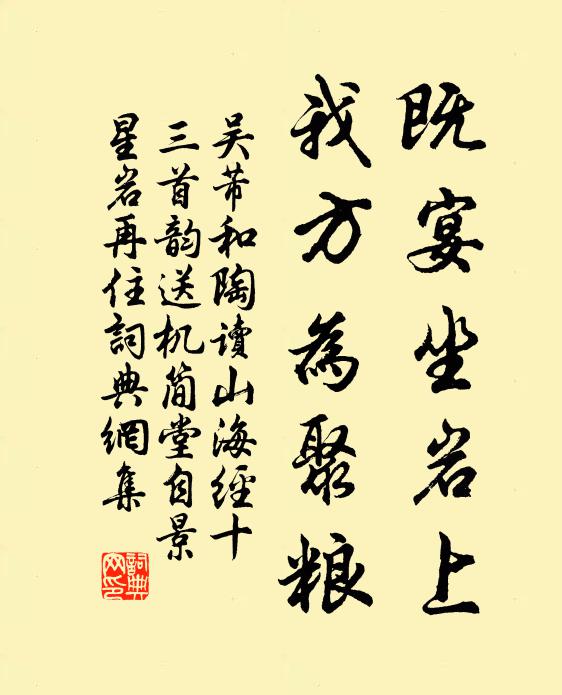 既宴坐岩上
我方為聚粮
吴芾和陶读山海經十
三首韵送机简堂自景
星岩再住詞典網集
詞典网印